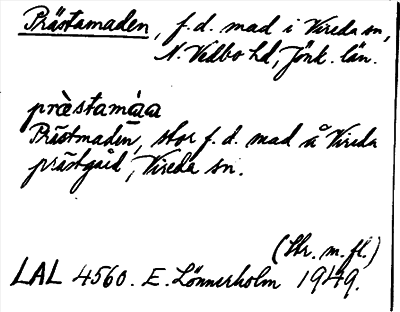 Prästamaden, f.d. mad i Vireda sn,
N. Vedbo hd, Jönk. län.
præ̀stamáa
Prästmaden, stor f.d. mad å Vireda
prästgård, Vireda sn.
(Str. m. fl.)
LAL 4560. E. Lönnerholm 1949.